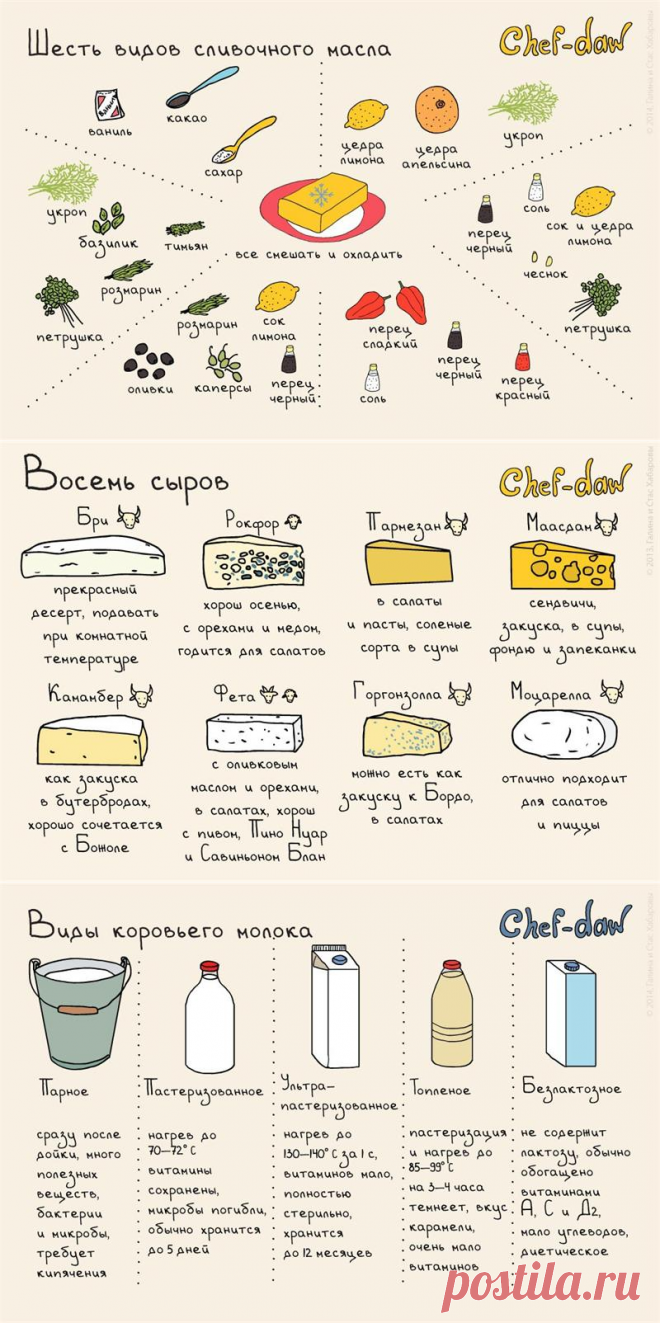 Шесть видов сливочного масла
Chef-daw
© 2014, Галина и Стас Хабаровы
ваниль
какао
сахар
цедра
лимона
цедра
апельсина
укроп
укроп
базилик
тимьян
розмарин
петрушка
все смешать и охладить
перец
черный
соль
сок и цедра
лимона
чеснок
петрушка
розмарин
сок
лимона
оливки
каперсы
перец
черный
перец
сладкий
соль
перец
черный
перец
красный
Восемь сыров
Chef-daw
© 2013, Галина и Стас Хабаровы
Бри
прекрасный
десерт, подавать
при комнатной
температуре
Рокфор
хорош осенью,
с орехами и медом,
годится для салатов
Пармезан
в салаты
и пасты, соленые
сорта в супы
Маасдам
сендвичи,
закуска, в супы,
фондю и запеканки
Камамбер
как закуска
в бутербродах,
хорошо сочетается
с Божоле
Фета
с оливковым
маслом и орехами,
в салатах, хорош
с пивом, Пино Нуар
и Савиньоном Блан
Горгонзолла
можно есть как
закуску к Бордо,
в салатах
Моцарелла
отлично подходит
для салатов
и пиццы
Виды коровьего молока
Chef-daw
© 2014, Галина и Стас Хабаровы
Парное
сразу после
дойки, много
полезных
веществ,
бактерии
и микробы,
требует
кипячения
Пастеризованное
нагрев до
70–72° С
витамины
сохранены,
микробы погибли,
обычно хранится
до 5 дней
Ультра-
пастеризованное
нагрев до
130–140° С за 1 с,
витаминов мало,
полностью
стерильно,
хранится
до 12 месяцев
Топленое
пастеризация
и нагрев до
85–99° С
на 3–4 часа
темнеет, вкус
карамели,
очень мало
витаминов
Безлактозное
не содержит
лактозу, обычно
обогащено
витаминами
А, С и Д2,
мало углеводов,
диетическое
postila.ru